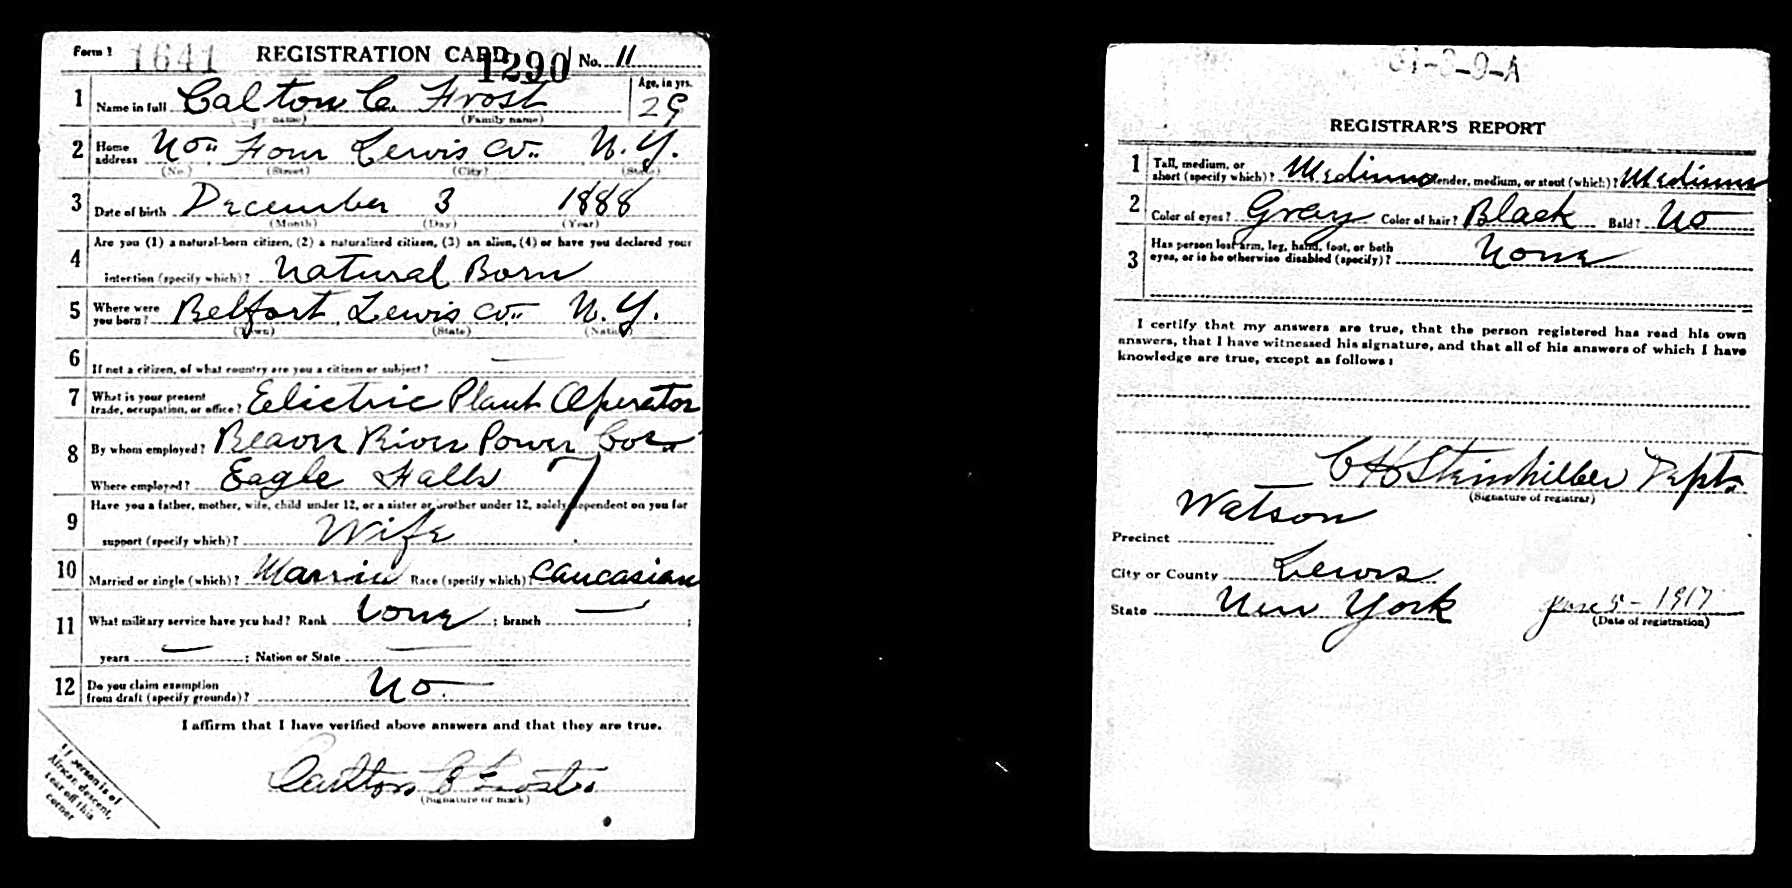 Form 1 1641 REGISTRATION CARD 1290 No. 11
1 Name in full Calton C. Frost Age, in yrs. 29
(Family name)
2 Home address No.. Four Lewis Co.. N.Y.
(No.) (Street) (City) (State)
3 Date of birth December 3 1888
(Month) (Day) (Year)
4 Are you (1) a natural-born citizen, (2) a naturalized citizen, (3) an alien, (4) or have you declared your
intention (specify which)? Natural Born
5 Where were you born? Belfort, Lewis Co.. N.Y.
(Town) (State) (Nation)
6 If not a citizen, of what country are you a citizen or subject? —
7 What is your present trade, occupation, or office? Electric Plant Operator
8 By whom employed? Beaver River Power
Where employed? Eagle Falls
9 Have you a father, mother, wife, child under 12, or a sister or brother under 12, solely dependent on you for
support (specify which)? Wife
10 Married or single (which)? Race (specify which)? Caucasian
11 What military service have you had? Rank None ; branch — ;
years — ; Nation or State —
12 Do you claim exemption from draft (specify grounds)? No.
I affirm that I have verified above answers and that they are true.
Carlton C Frost.
(Signature or mark)
If person is of
African descent,
tear off this
corner
REGISTRAR'S REPORT
1 Tall, medium, or short (specify which)? Medium Slender, medium, or stout (which)? Medium
2 Color of eyes? Gray Color of hair? Black Bald? No
3 Has person lost arm, leg, hand, foot, or both eyes, or is he otherwise disabled (specify)? None
I certify that my answers are true, that the person registered has read his own
answers, that I have witnessed his signature, and that all of his answers of which I have
knowledge are true, except as follows:
C H Steinhilber Dept.
(Signature of registrar)
Watson
Precinct
City or County Lewis
State New York June 5 - 1917
(Date of registration)